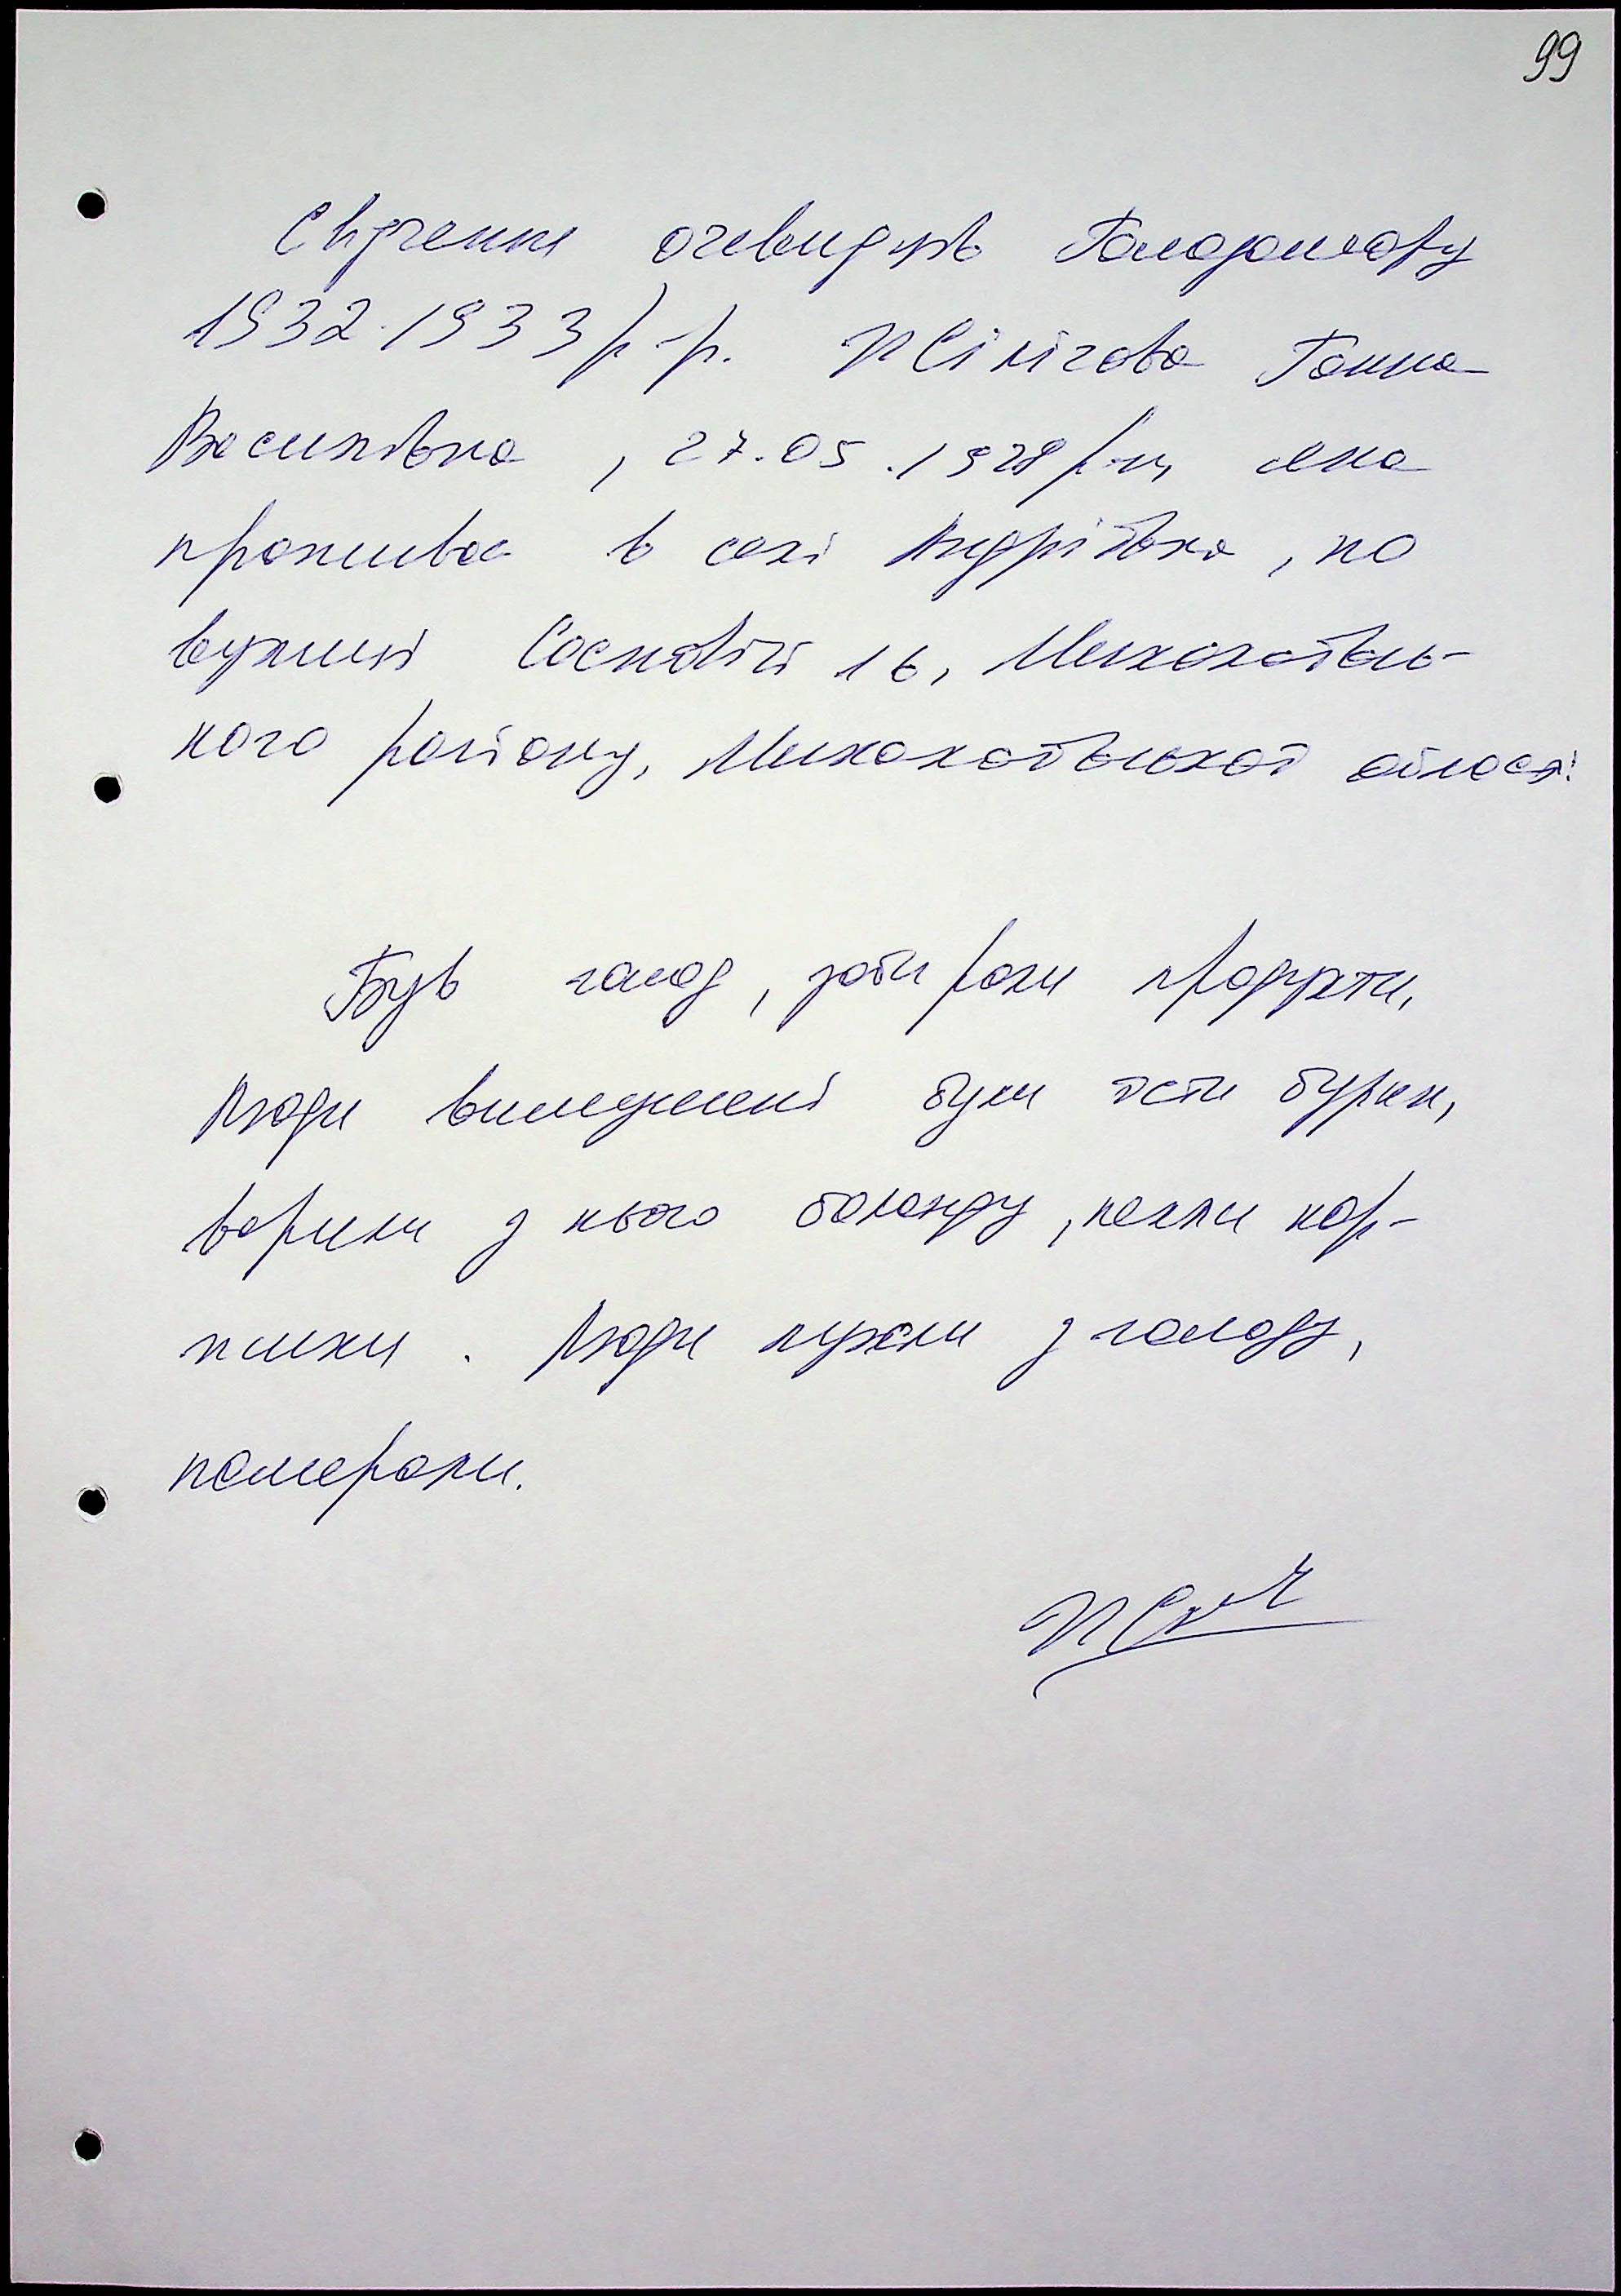 99
Свідчення очевидців Голодомору
1932-1933 р.р. Ганна
Василівна, 27.05.1928 р.н, яка
проживає в селі Андріївка, по
вулиці Садовій 16, Миколаївсь-
кого району, Миколаївської област
Був голод, забирали продукти,
люди вимушені були їсти буряк,
варили з нього баланду, пекли кор-
жики. Люди пухли з голоду,
помирали.